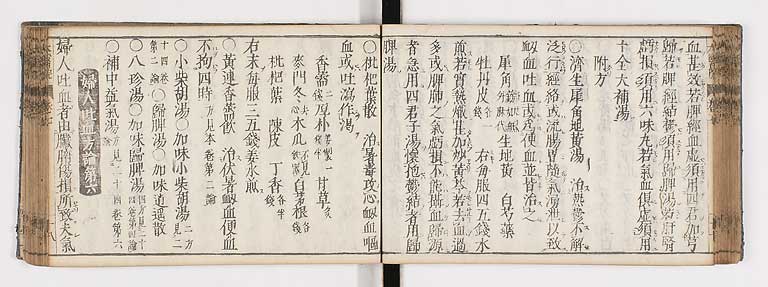 血甚效若脾經血虛須用四君加芎
歸若脾經結鬱須用歸脾湯若肝腎
虧損須用六味丸若氣血俱虛須用
十全大補湯
附方
○濟生犀角地黃湯 治熱鬱不解
泛行經絡或流腸胃隨氣湧泄以致
衂血吐血或為便血並皆治之
犀角 生地黃 白芍藥
牡丹皮 右每服四五錢水
煎若實熱燥甚加炒黃芩若去血過
多或脾肺之氣虧損不能攝血歸源
者急用四君子湯懷抱鬱結者用歸
脾湯
○枇杷葉散 治暑毒攻心衂血嘔
血或吐瀉作渴
香薷 厚朴 甘草
麥門冬 木瓜 白茅根
枇杷葉 陳皮 丁香
右末每服三五錢姜水煎
○黃連香薷飲 治伏暑衂血便血
不拘四時 方見本卷第二論
○小柴胡湯○加味小柴胡湯 二方見二
十四卷第二論 ○歸脾湯○加味逍遙散
○八珍湯○加味歸脾湯 四方見二十四卷第四論
○補中益氣湯 方見二十四卷第六
婦人吐血方論第六
婦人吐血者由臟腑傷損所致夫氣